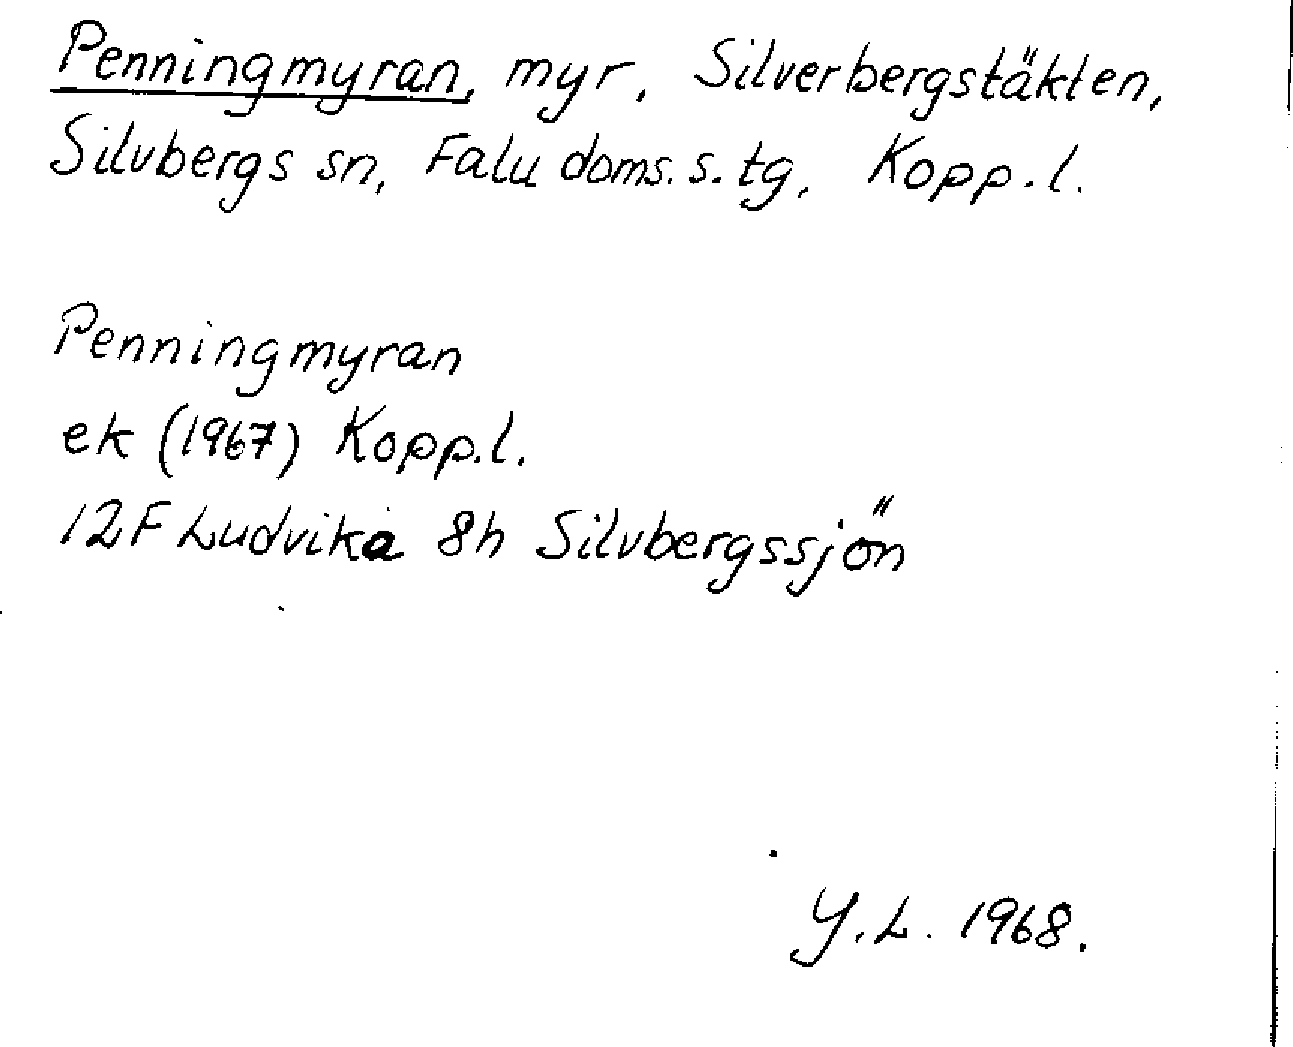 Penningmyran, myr, Silverbergstäkten,
Silvbergs sn, Falu doms. s. tg, Kopp. l.
Penningmyran
ek (1967) Kopp. l.
12F Ludvika 8h Silvbergssjön
Y. L. 1968.